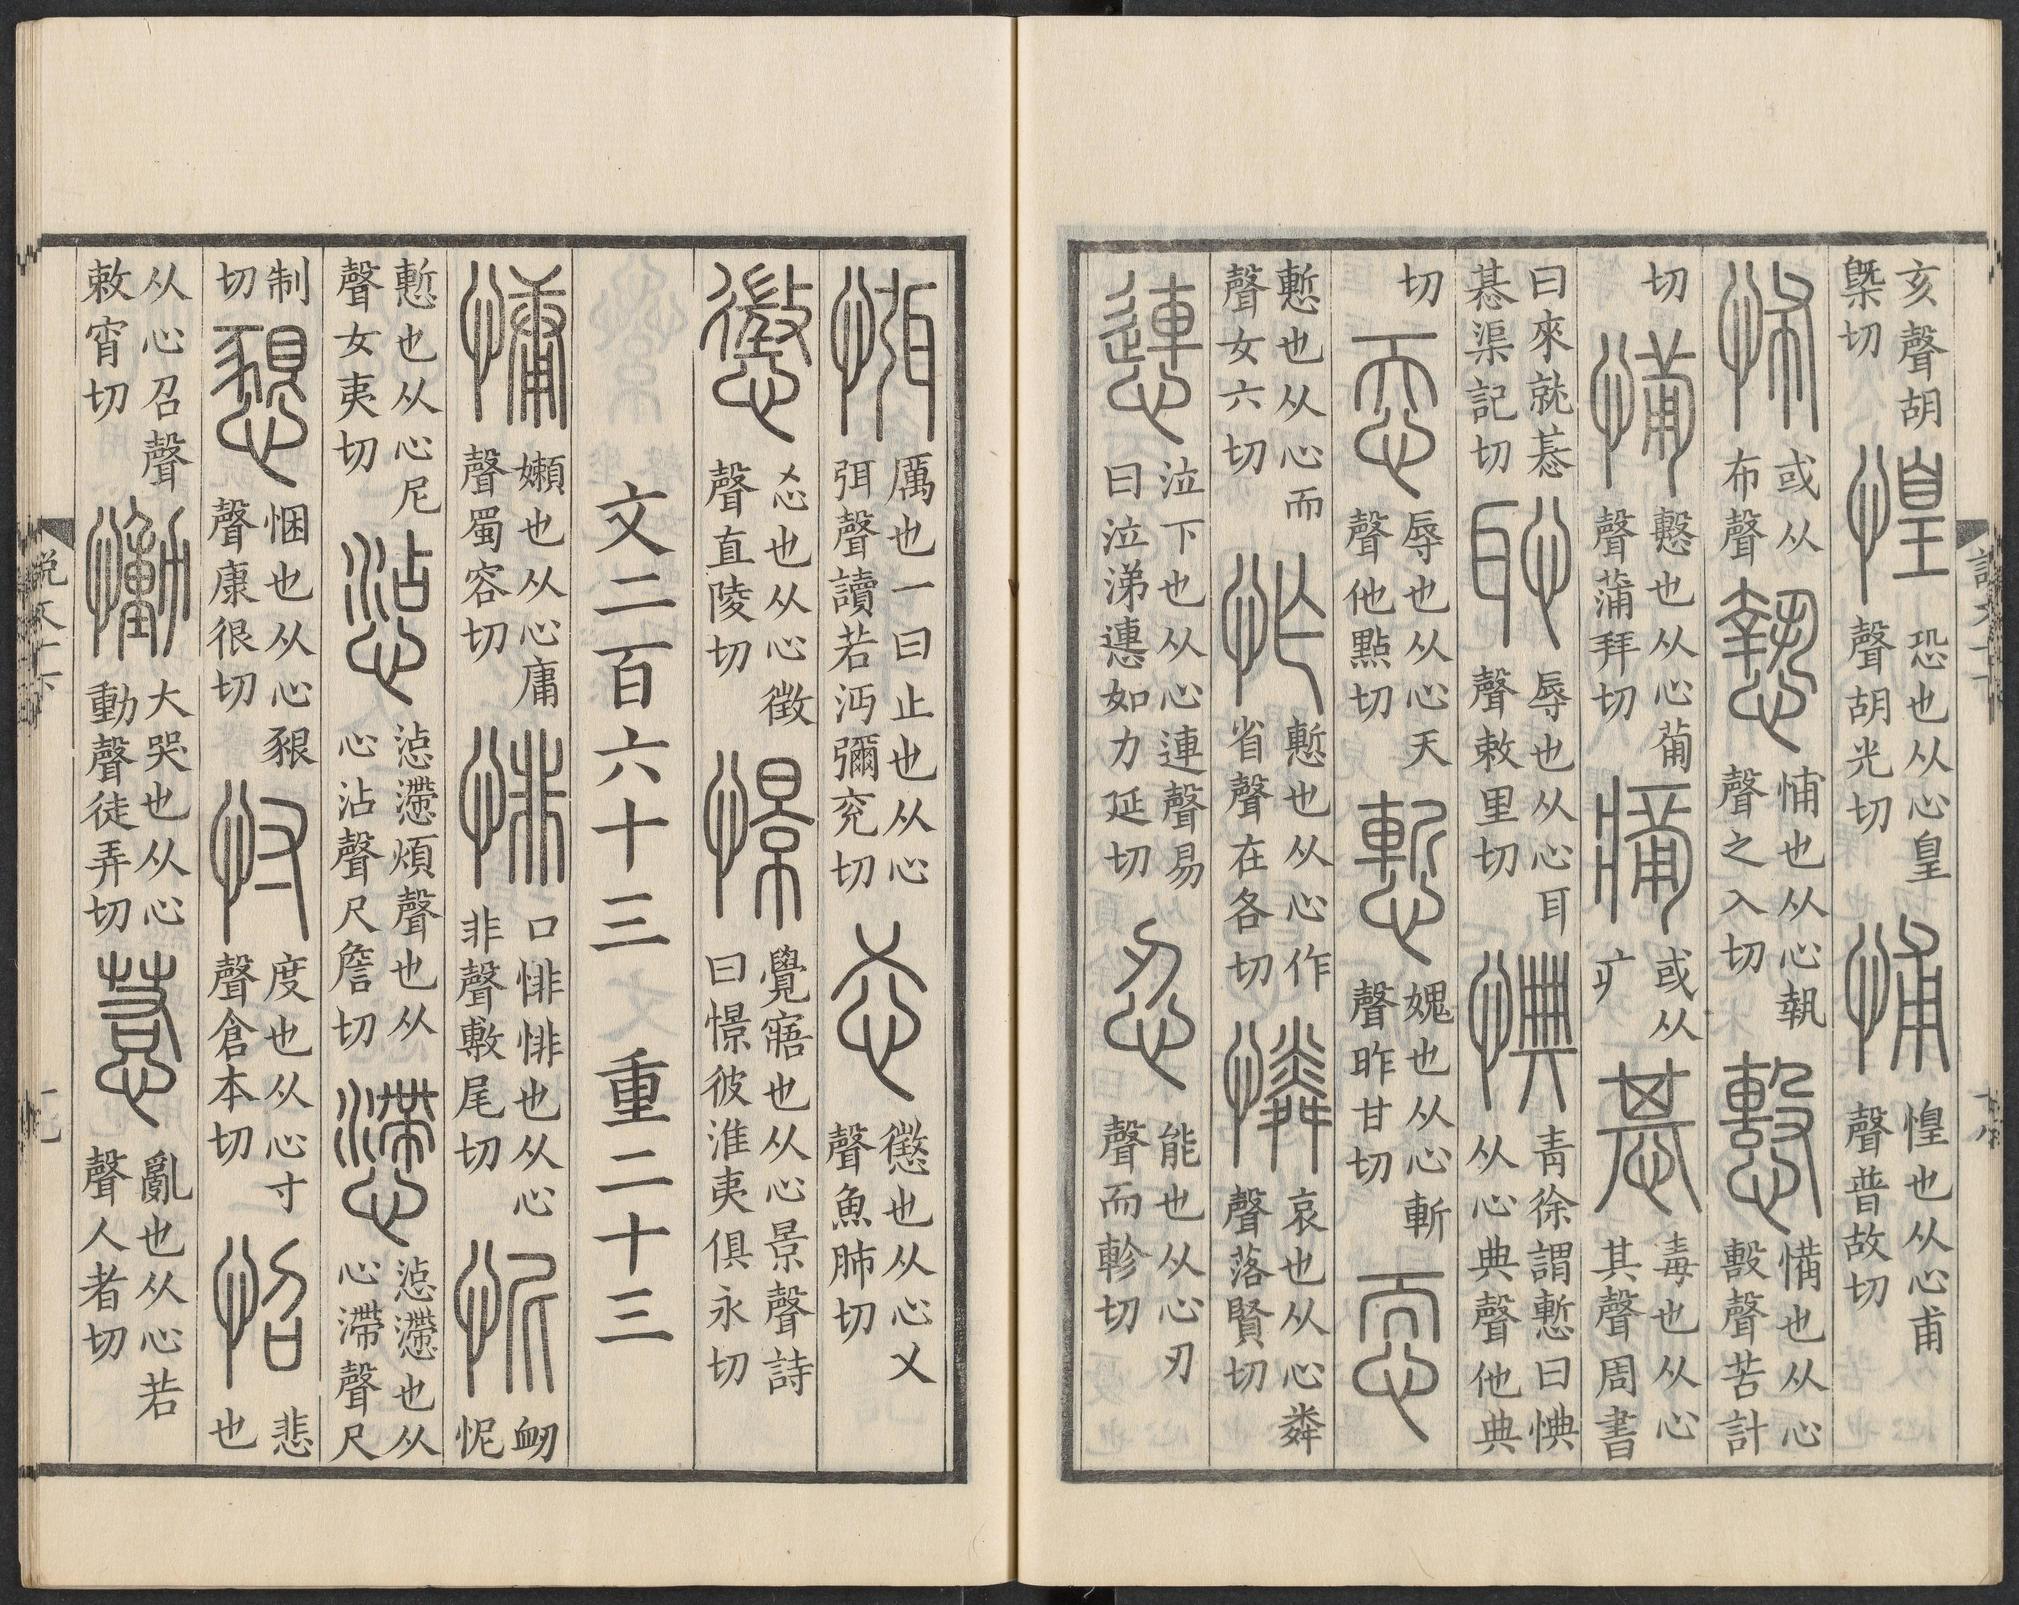 亥聲胡槩切 惶 恐也从心皇聲胡光切 悑 惶也从心甫聲普故切
怖 或从布聲 慹 悑也从心執聲之入切 憊也从心毄聲苦計
切 憊 也从心𤰇聲蒲拜切 或从疒 惎 毒也从心其聲周書
曰來就惎惎渠記切 恥 辱也从心耳聲敕里切 㥏 青徐謂慙曰㥏从心典聲他典
切 忝 辱也从心天聲他點切 慙 媿也从心斬聲昨甘切 恧
慙也从心而聲女六切 怍 慙也从心作省聲在各切 憐 哀也从心粦聲落賢切
㦁 泣下也从心連聲易曰泣涕㦁如力延切 忍 能也从心刃聲而軫切
㥝 厲也一曰止也从心弭聲讀若沔彌兖切 㣻 懲也从心乂聲魚肺切
懲 㣻也从心徵聲直陵切 憬 覺寤也从心景聲詩曰憬彼淮夷俱永切
文二百六十三 文 重二十三
慵 嬾也从心庸聲蜀容切 悱 口悱悱也从心非聲敷尾切 怩 䘐怩
慙也从心尼聲女夷切 惉 惉懘煩聲也从心沾聲尺詹切 懘 惉懘也从心滯聲尺
制切 懇 悃也从心豤聲康很切 忖 度也从心寸聲倉本切 怊 悲也
从心召聲敕宵切 慟 大哭也从心動聲徒弄切 惹 亂也从心若聲人者切
説文十下